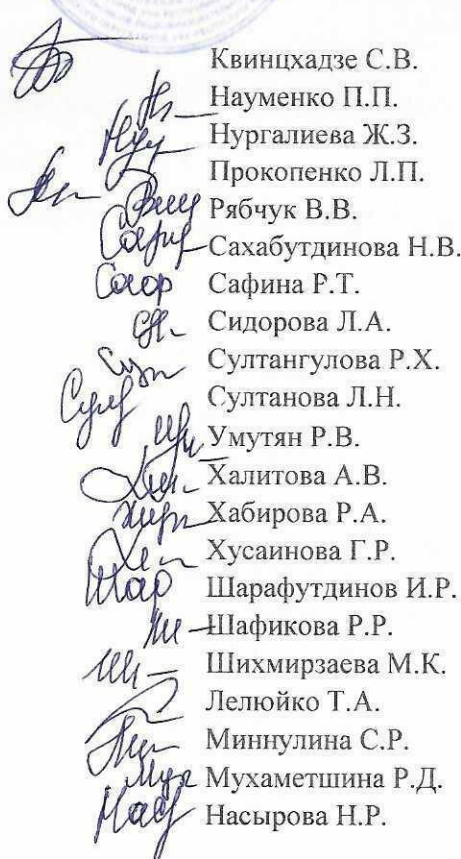 Квинцхадзе С.В.
Науменко П.П.
Нургалиева Ж.З.
Прокопенко Л.П.
Рябчук В.В.
Сахабутдинова Н.В.
Сафина Р.Т.
Сидорова Л.А.
Султангулова Р.Х.
Султанова Л.Н.
Умутян Р.В.
Халитова А.В.
Хабирова Р.А.
Хусаинова Г.Р.
Шарафутдинов И.Р.
Шафикова Р.Р.
Шихмирзаева М.К.
Лелюйко Т.А.
Миннулина С.Р.
Мухаметшина Р.Д.
Насырова Н.Р.